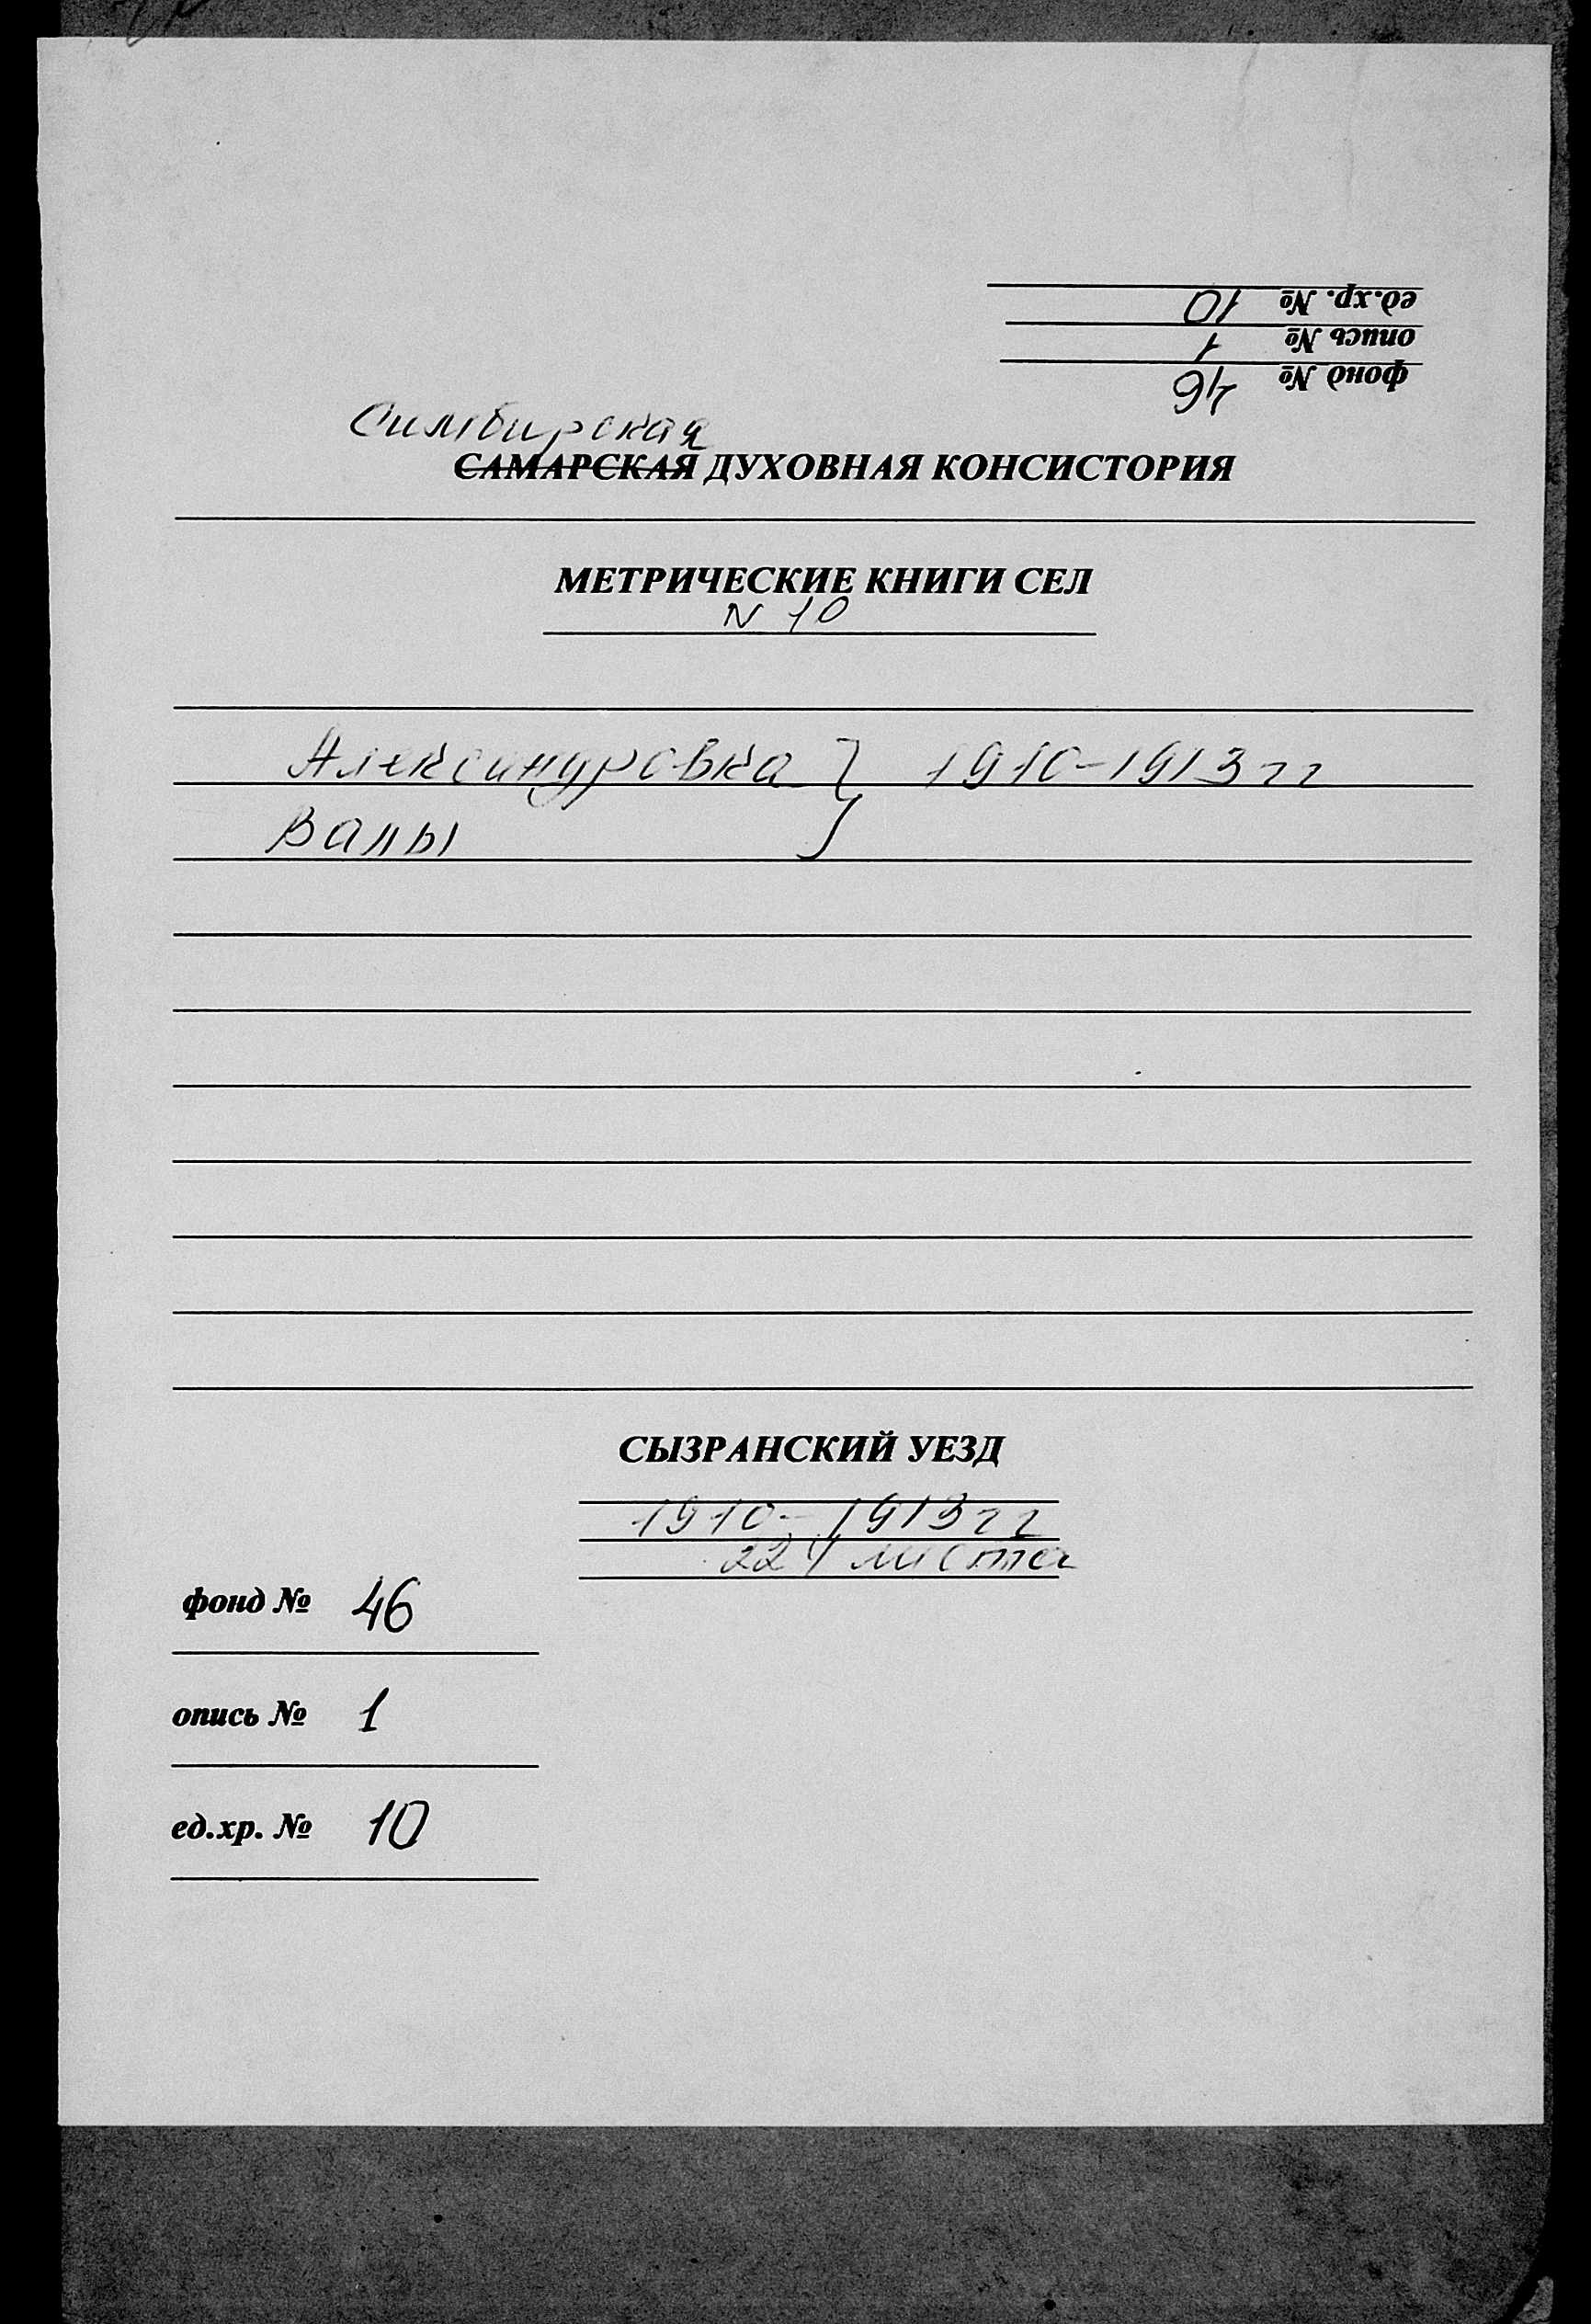 ед.хр. № 10
опись № 1
фонд № 46
Симбирская
САМАРСКАЯ ДУХОВНАЯ КОНСИСТОРИЯ
МЕТРИЧЕСКИЕ КНИГИ СЕЛ
N 10
Александровка } 1910-1913 гг
Валы
СЫЗРАНСКИЙ УЕЗД
1910-1913 гг
224 листа
фонд № 46
опись № 1
ед.хр. № 10